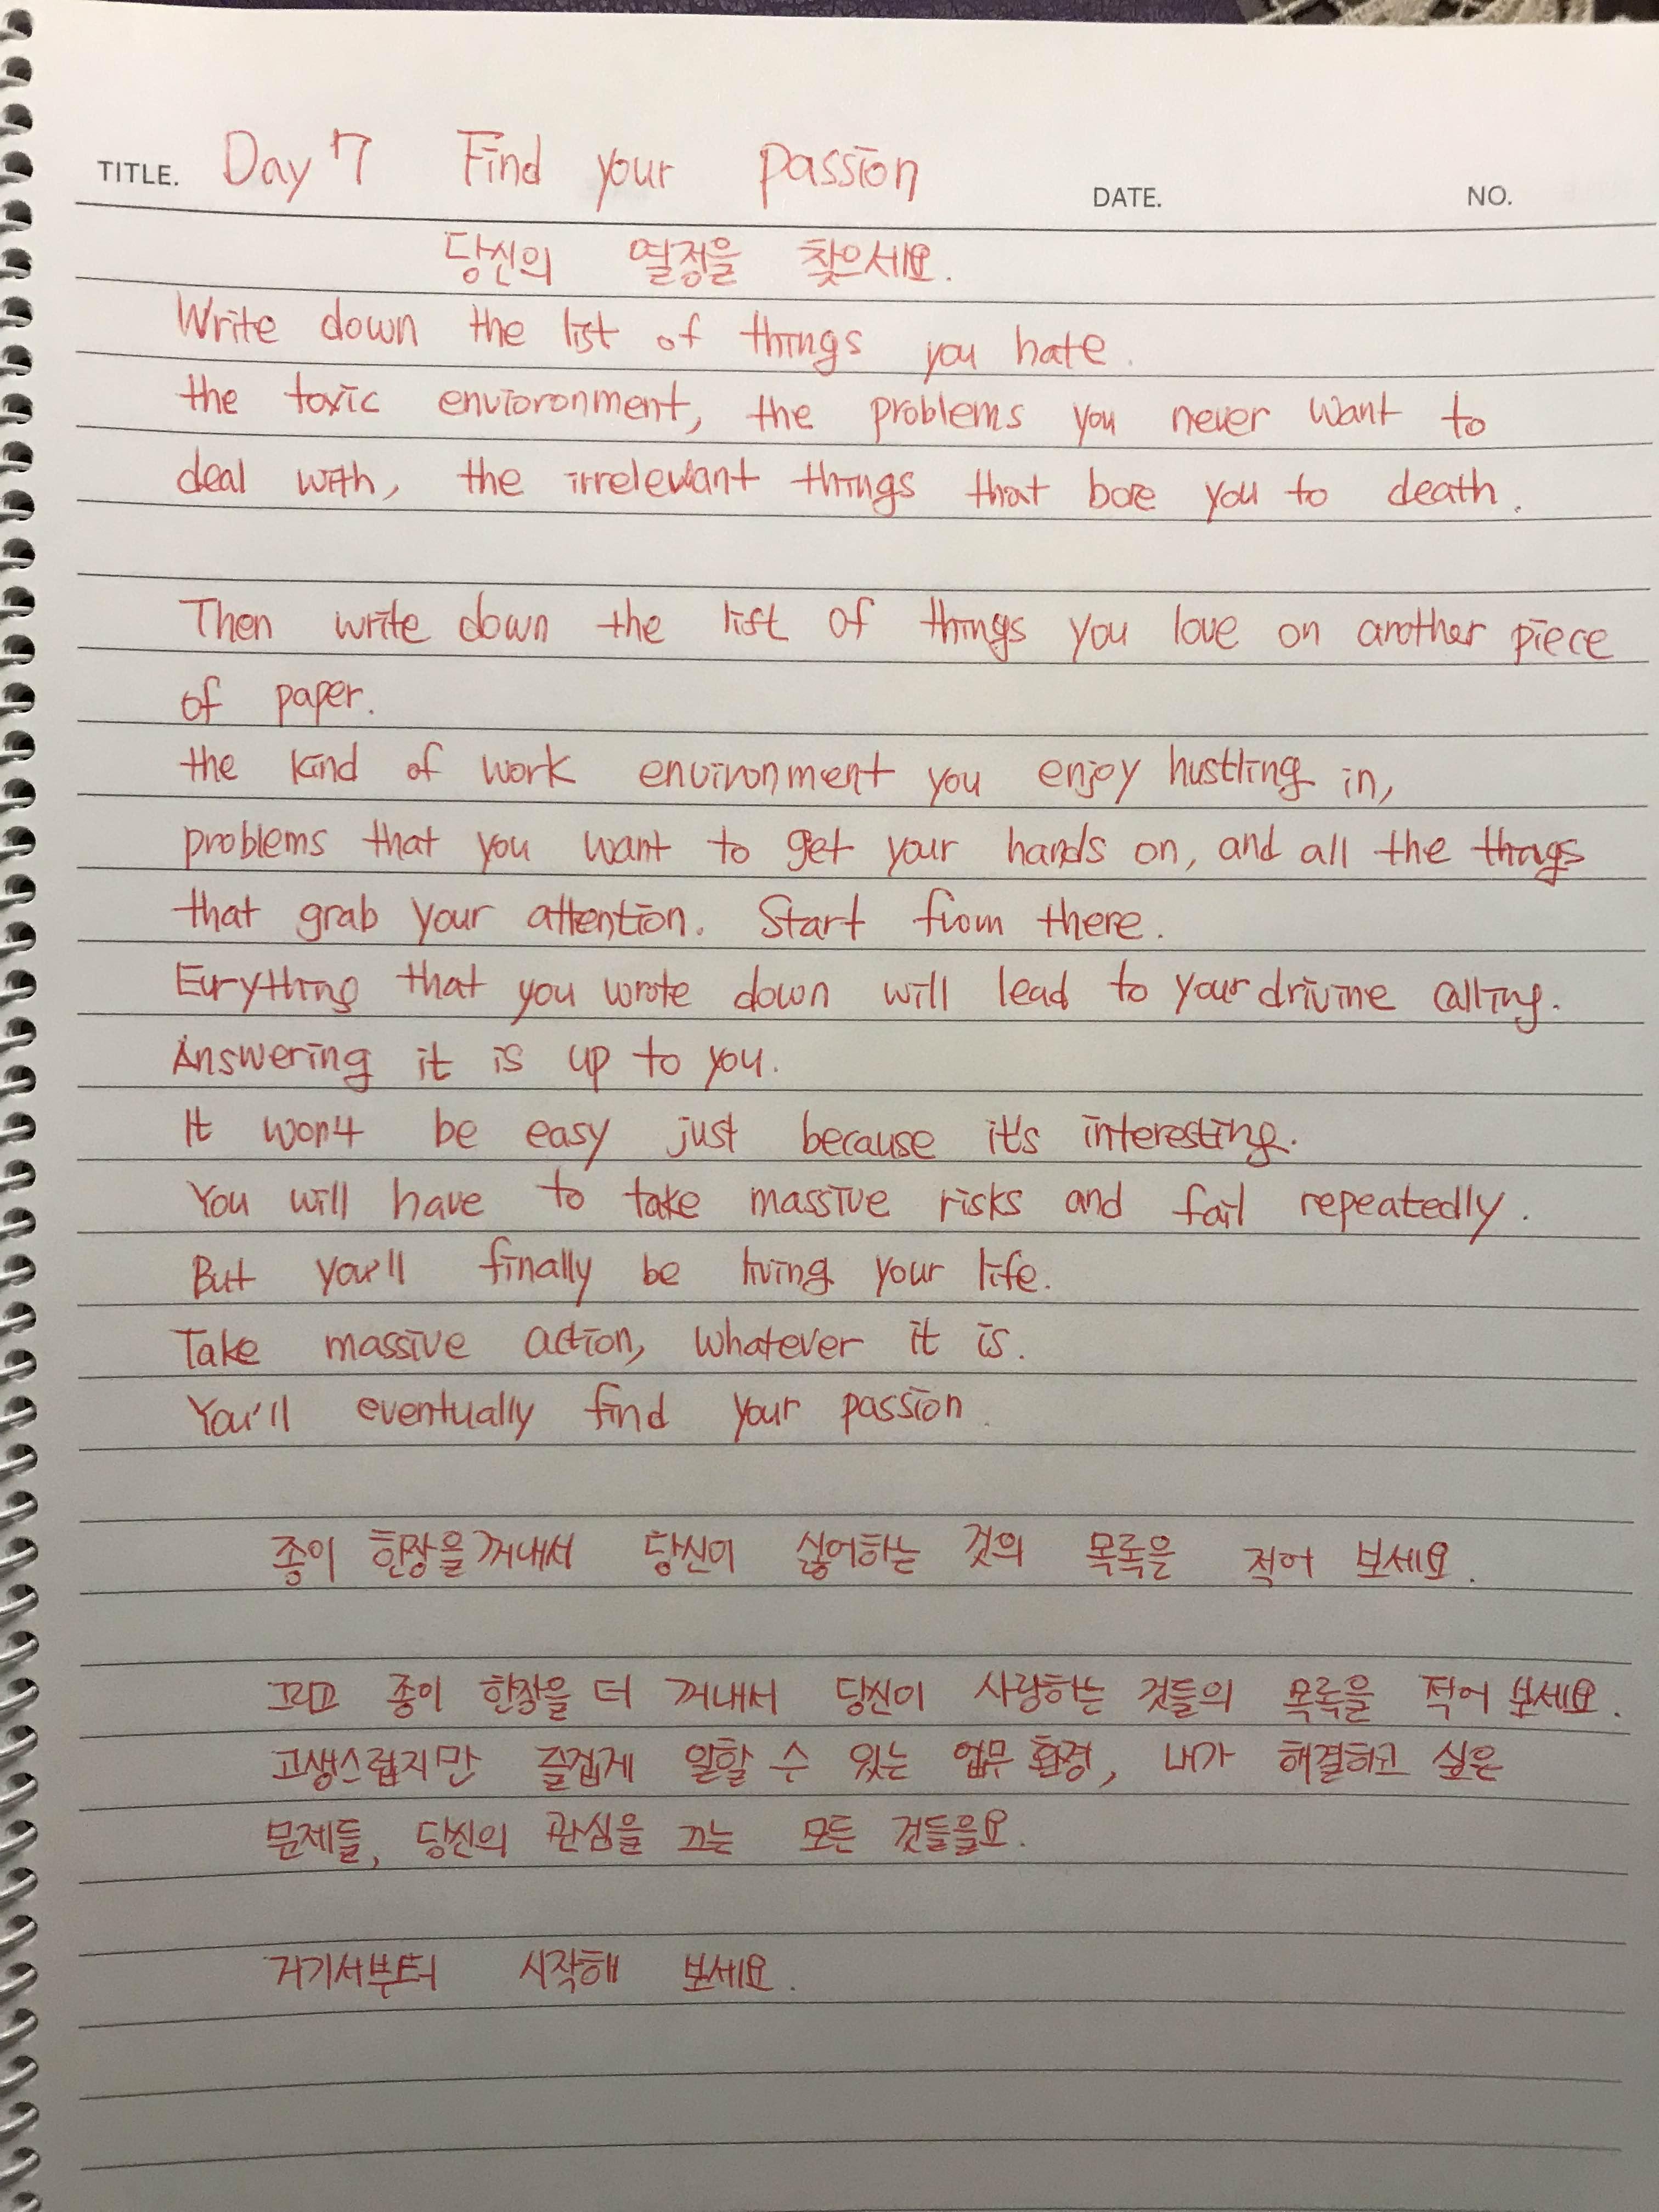 TITLE. Day 7 Find your passion DATE. NO.
당신의 열정을 찾으세요.
Write down the list of things you hate.
the toxic envioronment, the problems you never want to
deal with, the irrelevant things that bore you to death.
Then write down the list of things you love on another piece
of paper.
the kind of work environment you enjoy hustling in,
problems that you want to get your hands on, and all the things
that grab your attention. Start from there.
Eurything that you wrote down will lead to your drivine calling.
Answering it is up to you.
It won't be easy just because it's interesting.
You will have to take massive risks and fail repeatedly.
But you'll finally be living your life.
Take massive action, whatever it is.
You'll eventually find your passion.
종이 한장을 꺼내서 당신이 싫어하는 것의 목록을 적어 보세요.
그리고 종이 한장을 더 꺼내서 당신이 사랑하는 것들의 목록을 적어 보세요.
고생스럽지만 즐겁게 일할 수 있는 업무 환경, 내가 해결하고 싶은
문제들, 당신의 관심을 끄는 모든 것들을요.
거기서부터 시작해 보세요.